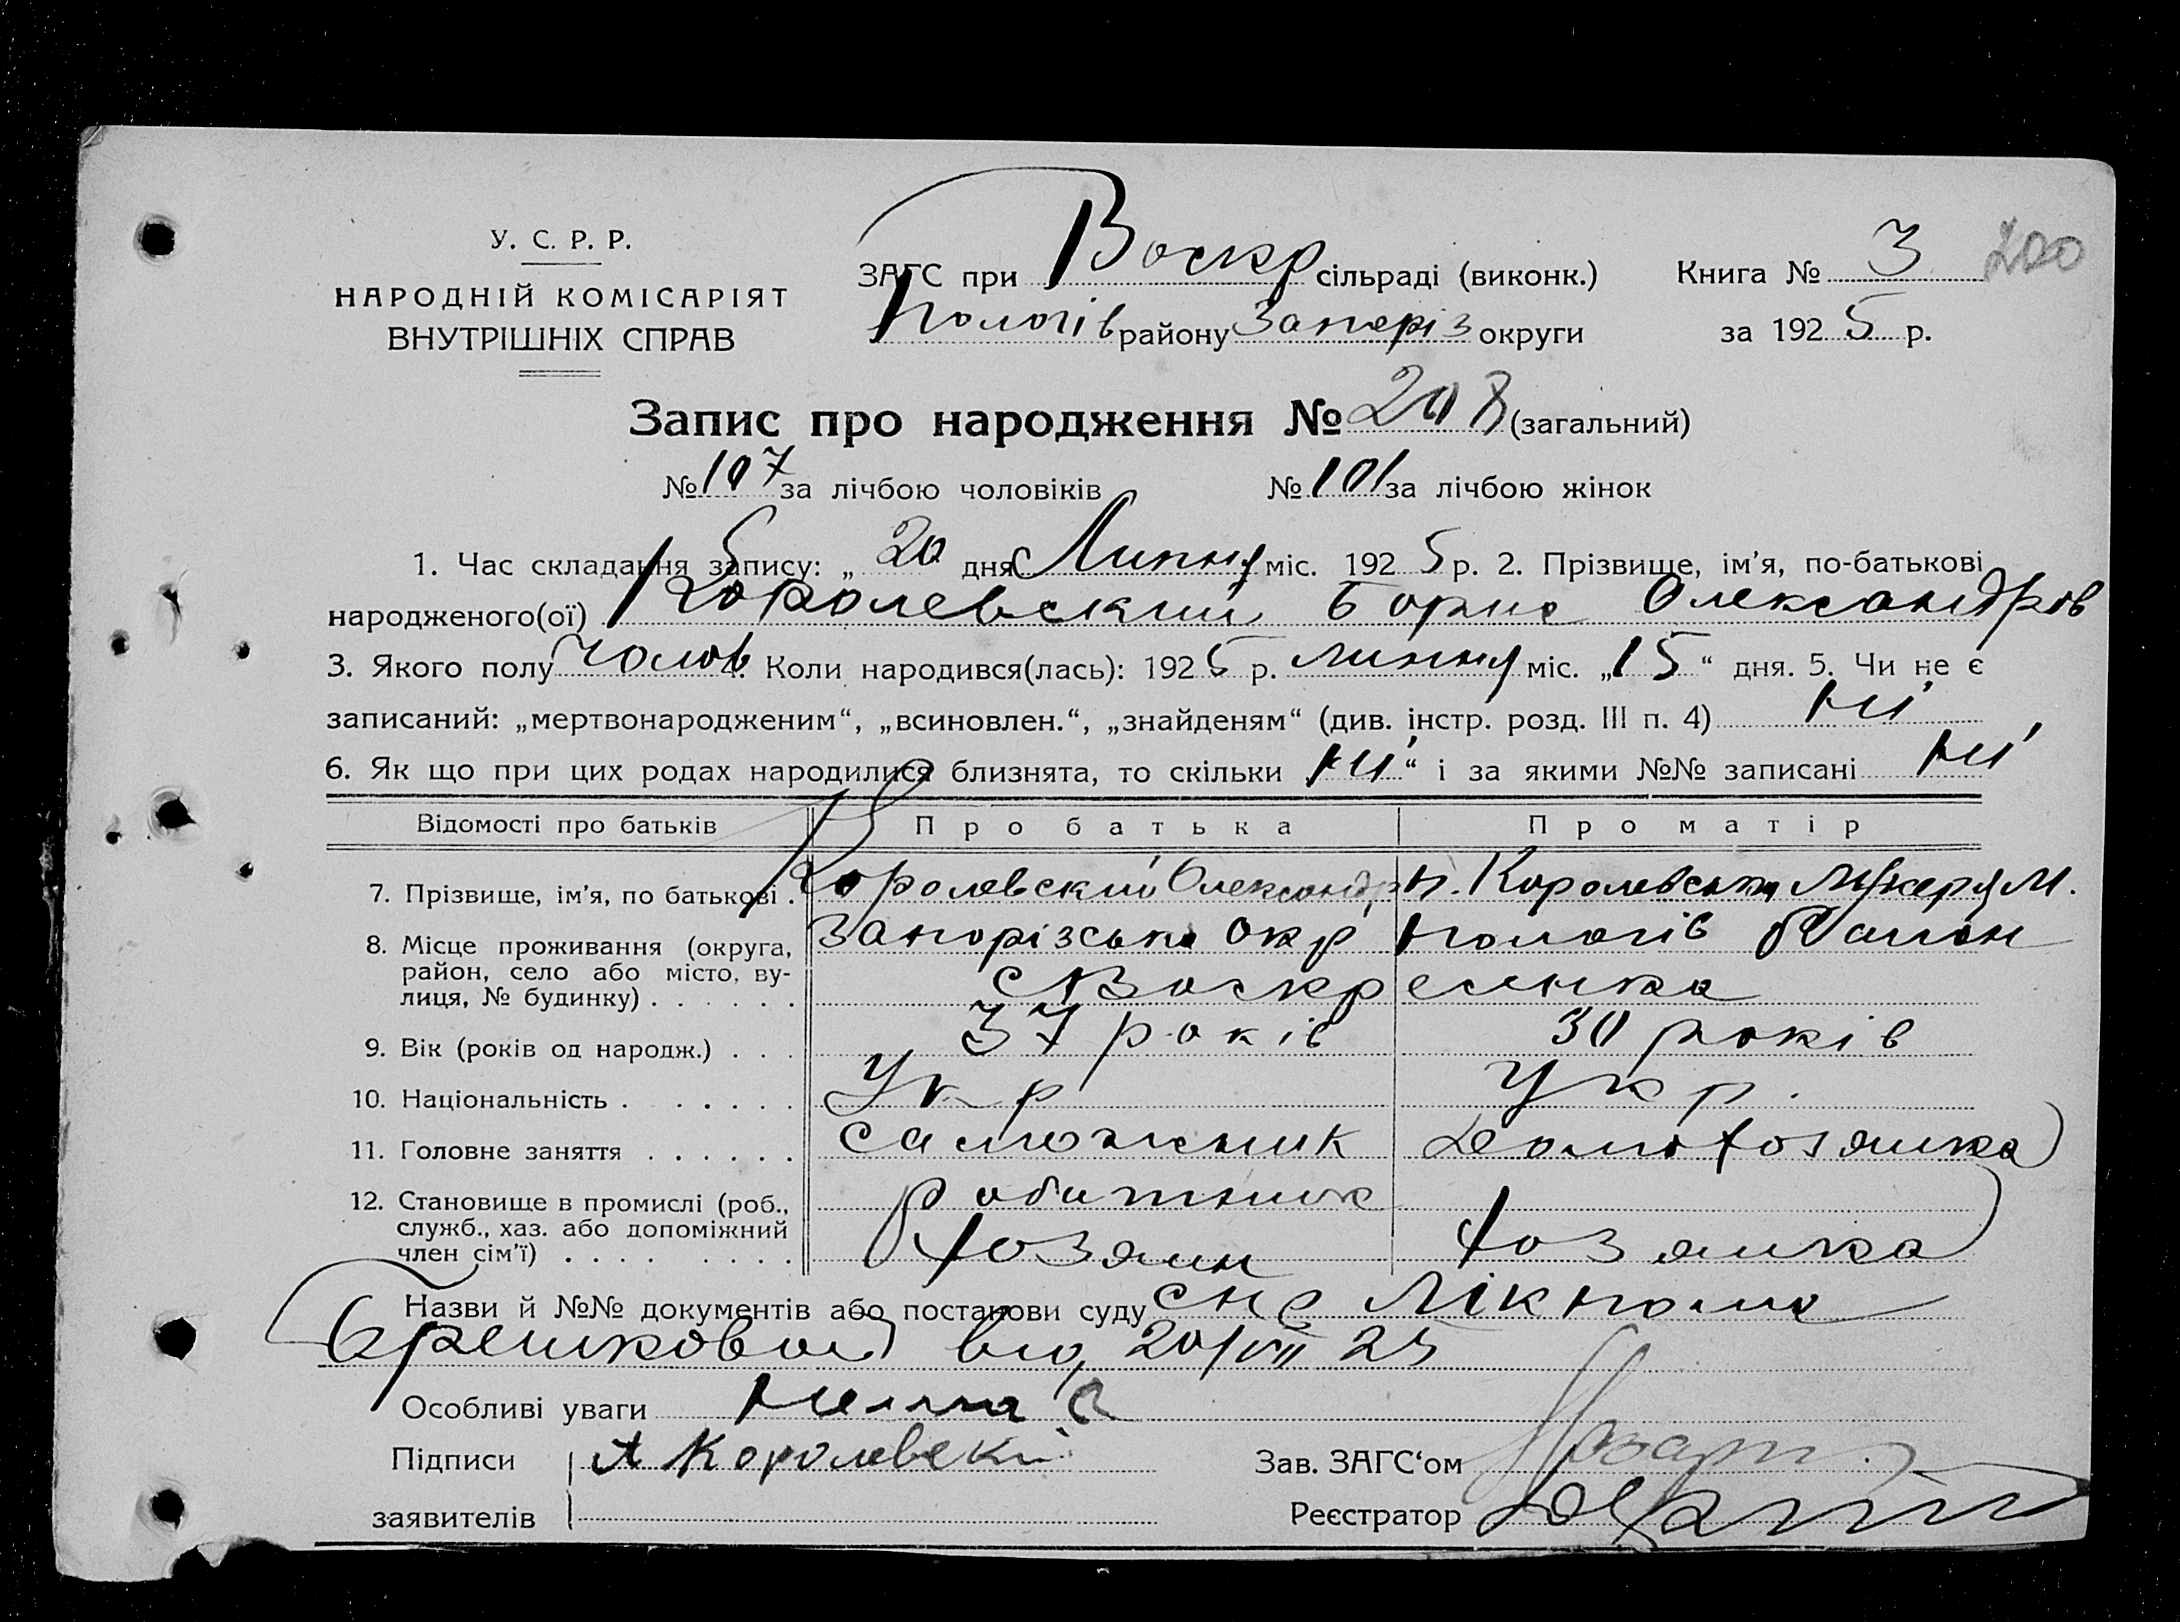 У. С. Р. Р.
НАРОДНІЙ КОМІСАРІЯТ
ВНУТРІШНІХ СПРАВ
ЗАГС при Воскр сільраді (виконк.)
Пологів району Запоріз округи
Книга № 3 200
за 1925 р.
Запис про народження № 208 (загальний)
№ 107 за лічбою чоловіків № 101 за лічбою жінок
1. Час складання запису: „ 20 дня Липня міс. 1925 р. 2. Прізвище, ім'я, по-батькові
народженого(ої) Королевский Борис Олександров
3. Якого полу Чолов 4. Коли народився(лась): 1925 р. липня міс. „15“ дня. 5. Чи не є
записаний: „мертвонародженим“, „всиновлен.“, „знайденям“ (див. інстр. розд. III п. 4) ні
6. Як що при цих родах народилися близнята, то скільки „ні“ і за якими №№ записані ні
Відомості про батьків Про батька Про матір
7. Прізвище, ім'я, по батькові . Королевский Олександр П. Королевська Лукеря М.
8. Місце проживання (округа, район, село або місто, вулиця, № будинку) . . . . . . Запорізська окр Пологів Район
с Воскресенка
9. Вік (років од народж.) . . . 37 років 30 років
10. Національність . . . . . . Укр Укр.
11. Головне заняття . . . . . . сапожник Домохозяика
12. Становище в промислі (роб., служб., хаз. або допоміжний член сім'ї) . . . . . . . . Робитник
Хозяин Хозяика
Назви й №№ документів або постанови суду Лікпома
від 20/VII 25
Особливі уваги нема
Підписи А Королевскі Зав. ЗАГС'ом
заявителів Реєстратор